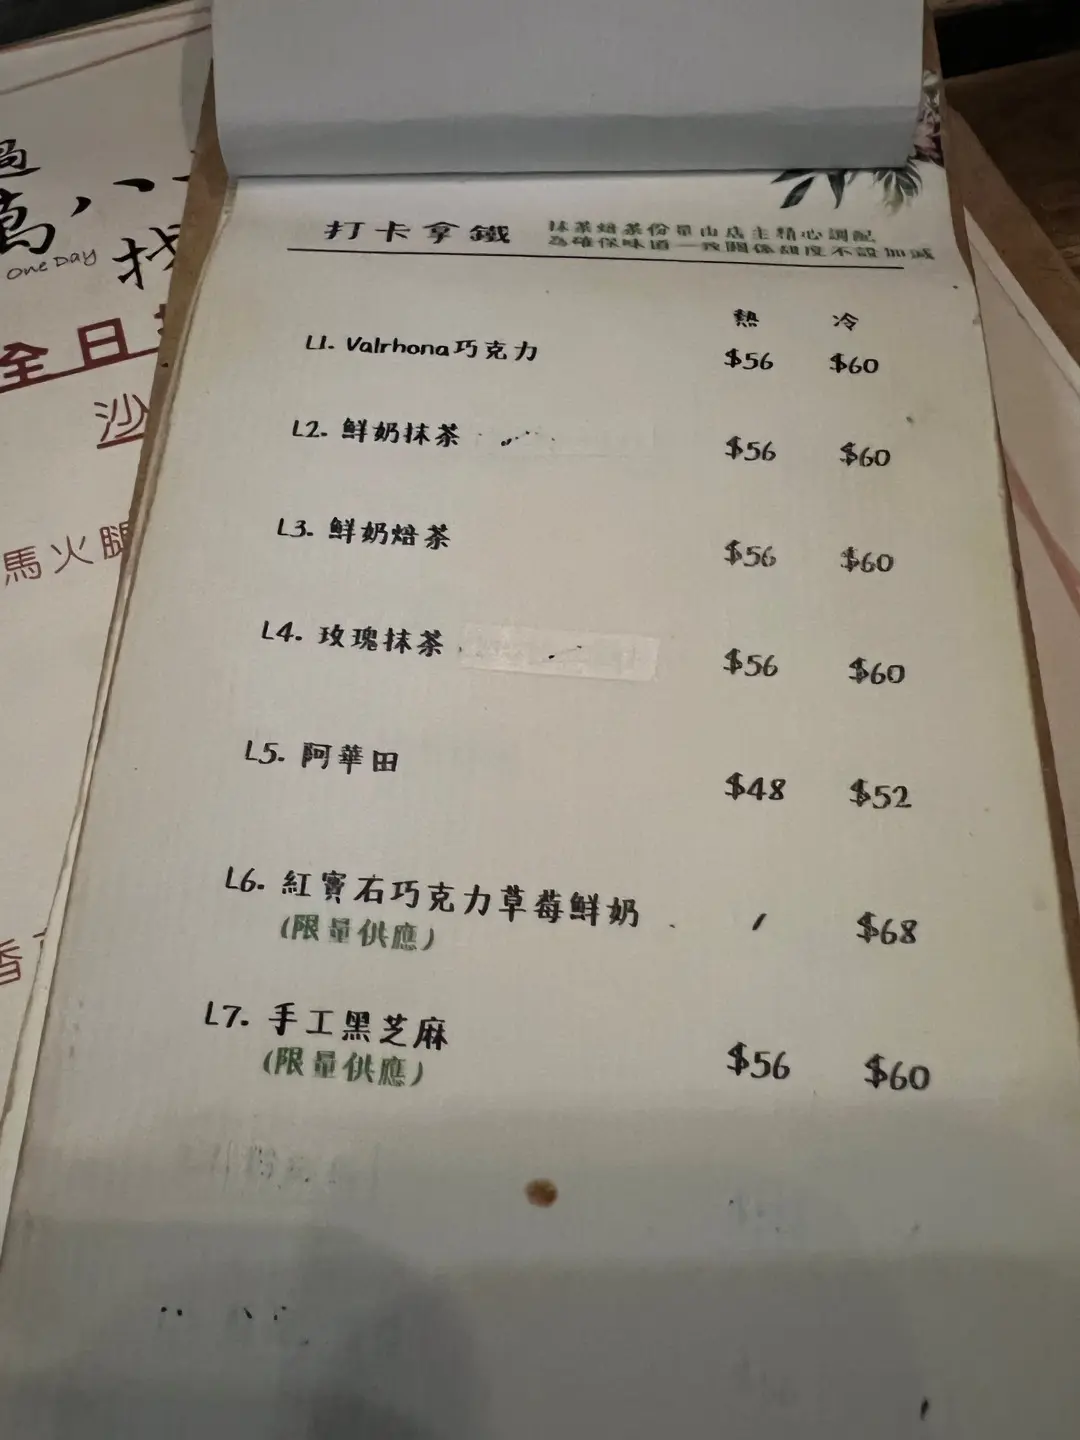 過
萬,八
One Day 找
全日
沙
馬火腿
香
打卡拿鐵
抹茶焙茶份量由店主精心調配
為確保味道一致關係甜度不設加減
熱 冷
L1. Valrhona巧克力 $56 $60
L2. 鮮奶抹茶 $56 $60
L3. 鮮奶焙茶 $56 $60
L4. 玫瑰抹茶 $56 $60
L5. 阿華田 $48 $52
L6. 紅寶石巧克力草莓鮮奶 / $68
(限量供應)
L7. 手工黑芝麻 $56 $60
(限量供應)